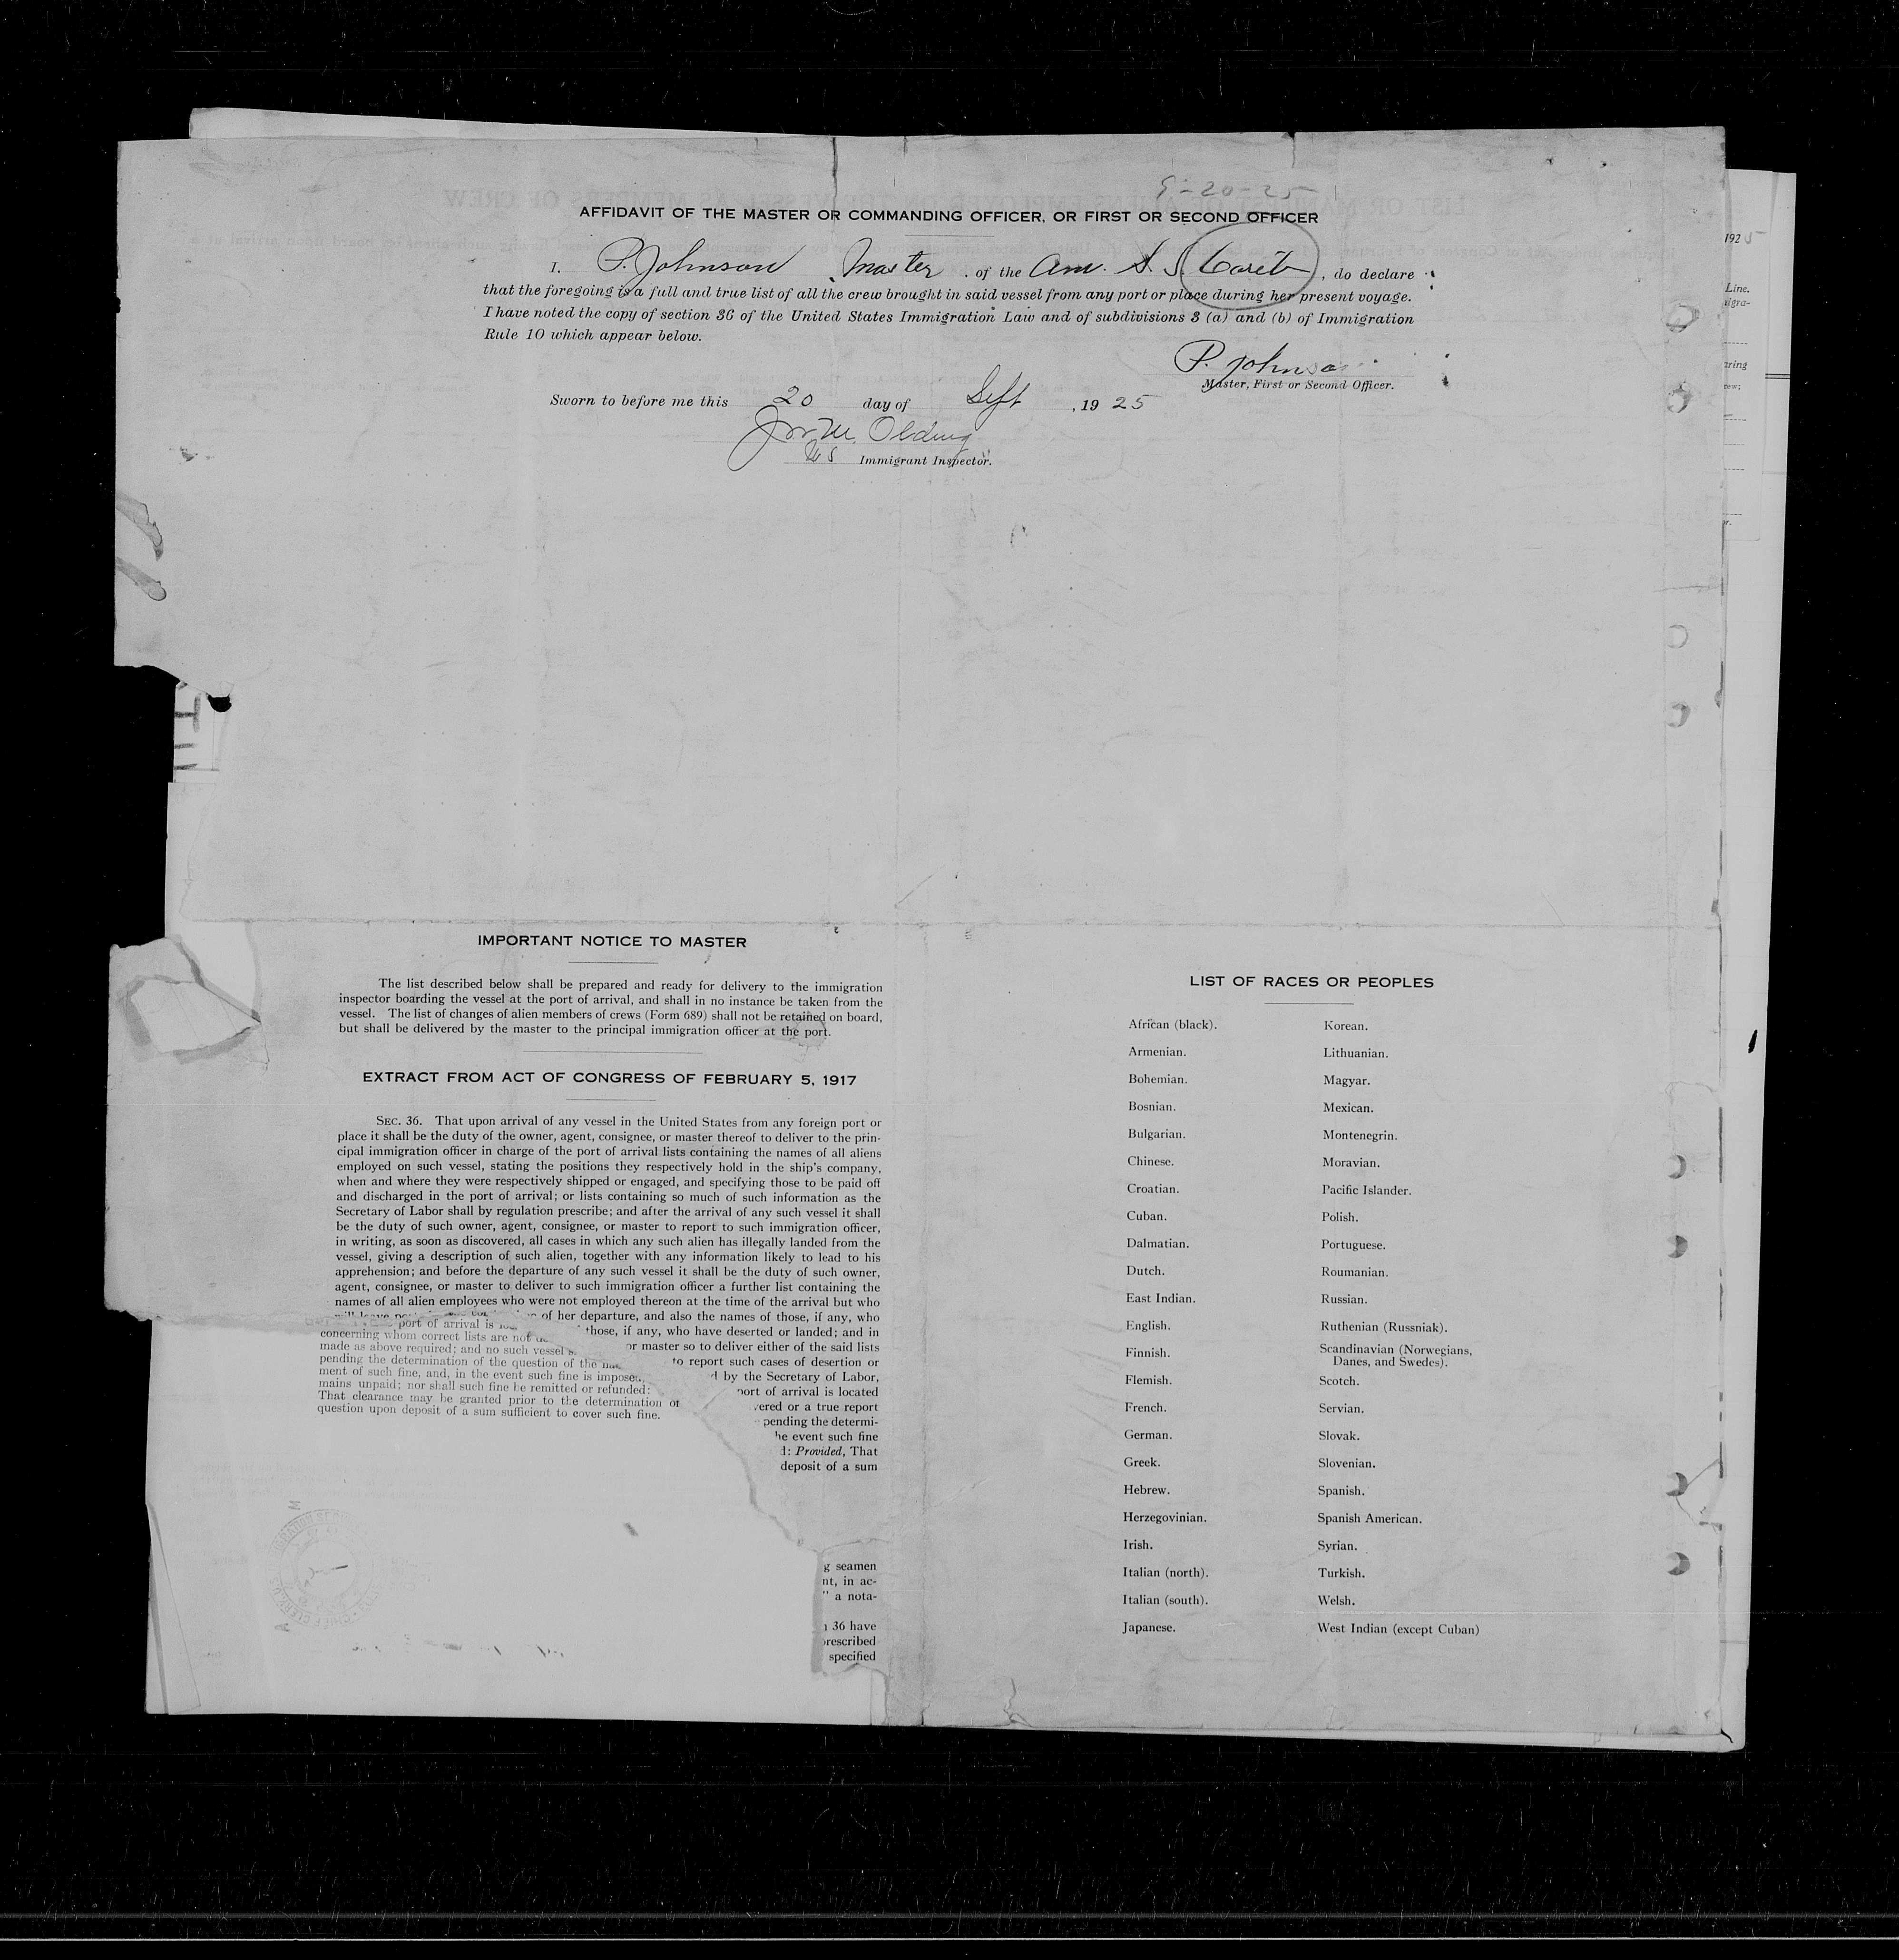 9-20-25
AFFIDAVIT OF THE MASTER OR COMMANDING OFFICER, OR FIRST OR SECOND OFFICER
I, P. Johnson, Master, of the Am. S. S. Carib, do declare
that the foregoing is a full and true list of all the crew brought in said vessel from any port or place during her present voyage.
I have noted the copy of section 36 of the United States Immigration Law and of subdivisions 3 (a) and (b) of Immigration
Rule 10 which appear below.
P. Johnson
Master, First or Second Officer.
Sworn to before me this 20 day of Sept, 1925
Olding
US Immigrant Inspector.
IMPORTANT NOTICE TO MASTER
The list described below shall be prepared and ready for delivery to the immigration
inspector boarding the vessel at the port of arrival, and shall in no instance be taken from the
vessel. The list of changes of alien members of crews (Form 689) shall not be retained on board,
but shall be delivered by the master to the principal immigration officer at the port.
EXTRACT FROM ACT OF CONGRESS OF FEBRUARY 5, 1917
SEC. 36. That upon arrival of any vessel in the United States from any foreign port or
place it shall be the duty of the owner, agent, consignee, or master thereof to deliver to the prin-
cipal immigration officer in charge of the port of arrival lists containing the names of all aliens
employed on such vessel, stating the positions they respectively hold in the ship's company,
when and where they were respectively shipped or engaged, and specifying those to be paid off
and discharged in the port of arrival; or lists containing so much of such information as the
Secretary of Labor shall by regulation prescribe; and after the arrival of any such vessel it shall
be the duty of such owner, agent, consignee, or master to report to such immigration officer,
in writing, as soon as discovered, all cases in which any such alien has illegally landed from the
vessel, giving a description of such alien, together with any information likely to lead to his
apprehension; and before the departure of any such vessel it shall be the duty of such owner,
agent, consignee, or master to deliver to such immigration officer a further list containing the
names of all alien employees who were not employed thereon at the time of the arrival but who
of her departure, and also the names of those, if any, who
those, if any, who have deserted or landed; and in
or master so to deliver either of the said lists
to report such cases of desertion or
by the Secretary of Labor,
port of arrival is located
vered or a true report
pending the determi-
he event such fine
d: Provided, That
deposit of a sum
port of arrival is
concerning whom correct lists are not
made as above required; and no such vessel
pending the determination of the question of the
ment of such fine, and, in the event such fine is imposed,
mains unpaid; nor shall such fine be remitted or refunded:
That clearance may be granted prior to the determination of
question upon deposit of a sum sufficient to cover such fine.
g seamen
nt, in ac-
" a nota-
36 have
prescribed
specified
LIST OF RACES OR PEOPLES
African (black).
Armenian.
Bohemian.
Bosnian.
Bulgarian.
Chinese.
Croatian.
Cuban.
Dalmatian.
Dutch.
East Indian.
English.
Finnish.
Flemish.
French.
German.
Greek.
Hebrew.
Herzegovinian.
Irish.
Italian (north).
Italian (south).
Japanese.
Korean.
Lithuanian.
Magyar.
Mexican.
Montenegrin.
Moravian.
Pacific Islander.
Polish.
Portuguese.
Roumanian.
Russian.
Ruthenian (Russniak).
Scandinavian (Norwegians,
Danes, and Swedes).
Scotch.
Servian.
Slovak.
Slovenian.
Spanish.
Spanish American.
Syrian.
Turkish.
Welsh.
West Indian (except Cuban)
1925
Line.